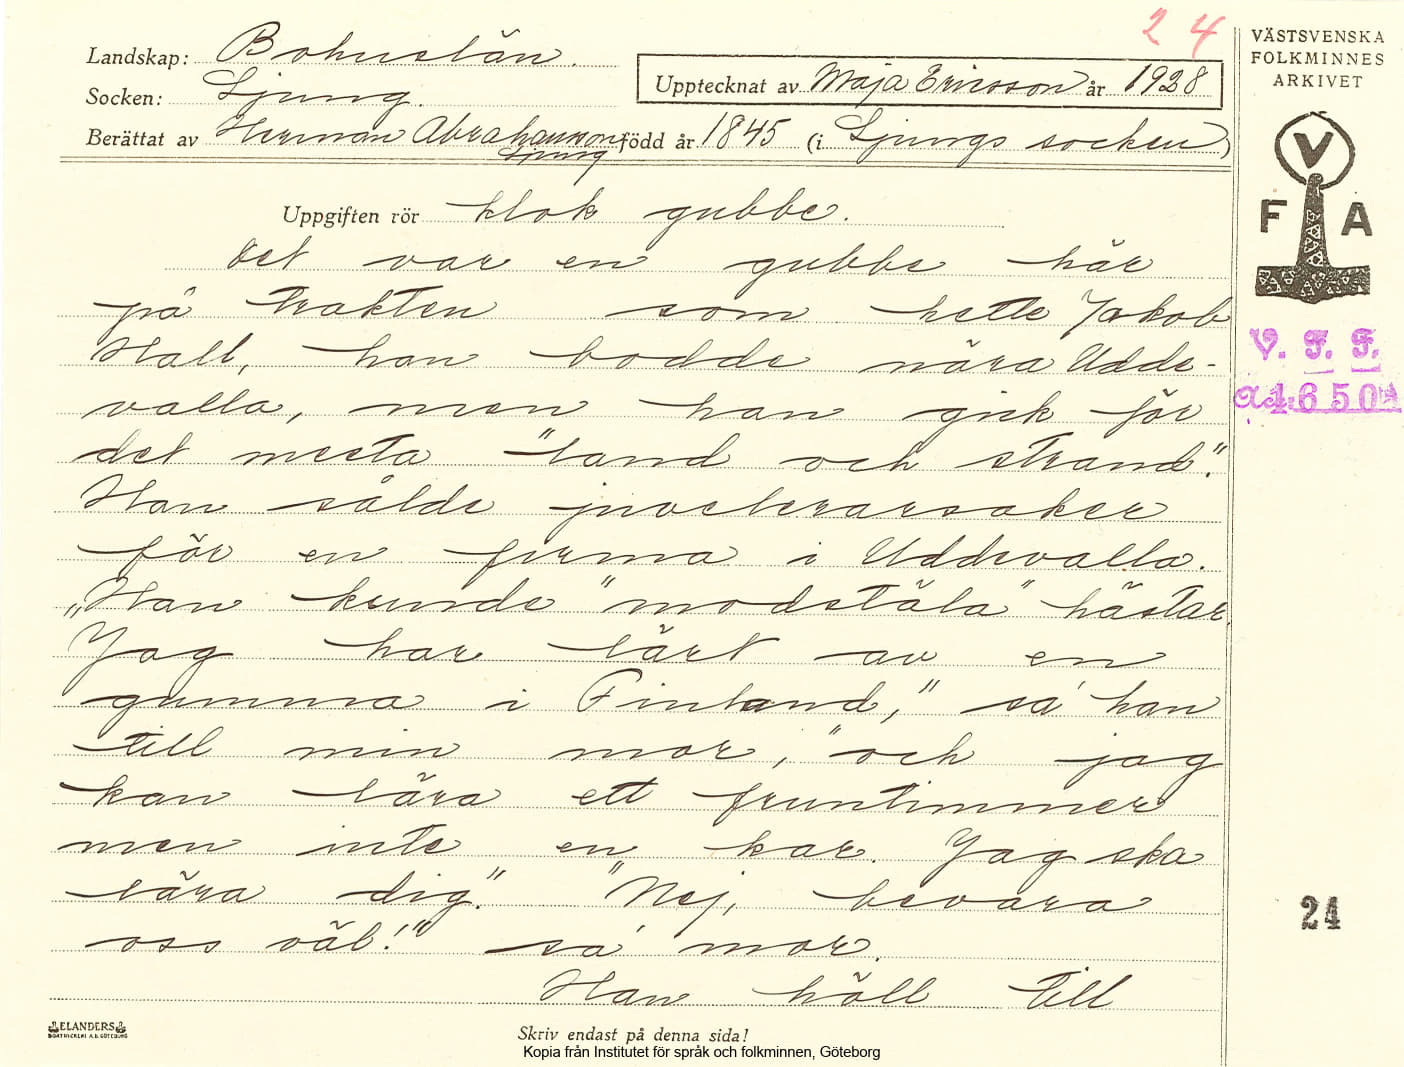 24
Landskap: Bohuslän.
Socken: Ljung.
Upptecknat av Maja Ericsson år 1928
Berättat av Herman Abrahamson född år 1845 (i Ljungs socken)
Ljung
Uppgiften rör klok gubbe.
Det var en gubbe här
på trakten som hette Jakob
Hall, han bodde nära Udde-
valla, men han gick för
det mesta "land och strand".
Han sålde juvelerarsaker
för en firma i Uddevalla.
„Han kunde "modstäla" hästar.
Jag har lärt av en
gumma i Finland," sa' han
till min mor, "och jag
kan lära ett fruntimmer
men inte en kar. Jag ska
lära dig." "Nej, bevara
oss väl!" sa' mor.
Han höll till
VÄSTSVENSKA
FOLKMINNES
ARKIVET
V
F A
V. F. F.
1650
24
ELANDERS
BOKTRYCKERI A.B. GÖTEBORG
Skriv endast på denna sida!
Kopia från Institutet för språk och folkminnen, Göteborg